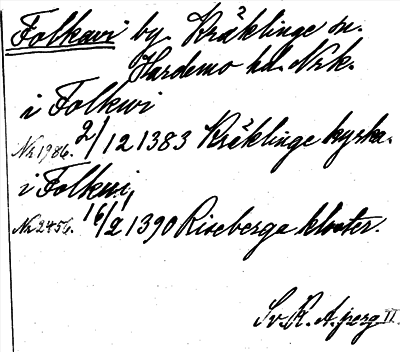 Folkavi by. Kräklinge sn.
Hardemo hd. Nrk.
i Folkwi
Nr 1986. 2/12 1383 Kräklinge kyrka.
i Folkwi,
Nr 2456. 16/2 1390 Riseberga kloster.
Sv. R. A. perg II.